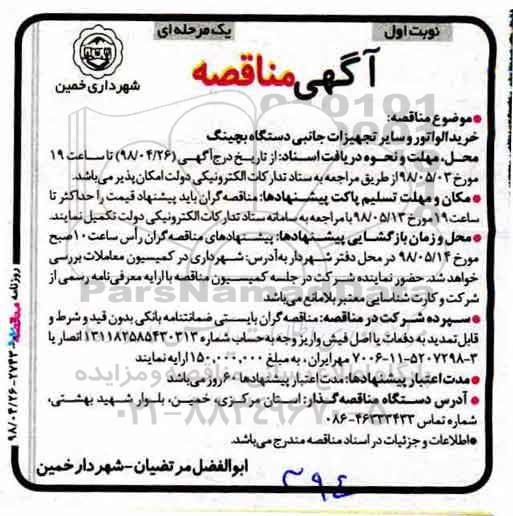 نوبت اول
یک مرحله ای
شهرداری خمین
آگهی مناقصه
• موضوع مناقصه:
خرید الواتور و سایر تجهیزات جانبی دستگاه بچینگ
محل، مهلت و نحوه دریافت اسناد: از تاریخ درج آگهی (۹۸/۰۴/۲۶) تا ساعت ۱۹
مورخ ۹۸/۰۵/۰۳ از طریق مراجعه به ستاد تدارکات الکترونیکی دولت امکان پذیر می باشد.
• مکان و مهلت تسلیم پاکت پیشنهادها: مناقصه گران باید پیشنهاد قیمت را حداکثر تا
ساعت ۱۹ مورخ ۹۸/۰۵/۱۳ با مراجعه به سامانه ستاد تدارکات الکترونیکی دولت تکمیل نمایند.
• محل و زمان بازگشایی پیشنهادها: پیشنهادهای مناقصه گران رأس ساعت ۱۰ صبح
مورخ ۹۸/۰۵/۱۴ در محل دفتر شهردار به آدرس: شهرداری در کمیسیون معاملات بررسی
خواهد شد. حضور نماینده شرکت در جلسه کمیسیون مناقصه با ارایه معرفی نامه رسمی از
شرکت و کارت شناسایی معتبر بلامانع می باشد
• سپرده شرکت در مناقصه: مناقصه گران بایستی ضمانتنامه بانکی بدون قید و شرط و
قابل تمدید به دفعات یا اصل فیش واریز وجه به حساب شماره ۱۳۱۱۸۲۵۸۵۴۳۰۳۱۳ انصار یا
۷۰۰۶-۱۱-۵۲۰۷۲۹۸-۳ مهر ایران، به مبلغ ۱۵۰,۰۰۰,۰۰۰ ارایه نمایند
• مدت اعتبار پیشنهادها: مدت اعتبار پیشنهادها، ۶۰ روز می باشد
• آدرس دستگاه مناقصه گذار: استان مرکزی، خمین، بلوار شهید بهشتی،
شماره تماس ۴۶۳۳۳۴۳۳-۰۸۶
• اطلاعات و جزئیات در اسناد مناقصه مندرج می باشد.
ابوالفضل مرتضیان - شهردار خمین
۳۹٤
روزنامه
۹۸/۰۴/۲۶-۲۷۴۳
ParsNamadData
۰۲۱-۸۸۳۴۹۶۷۰-۵